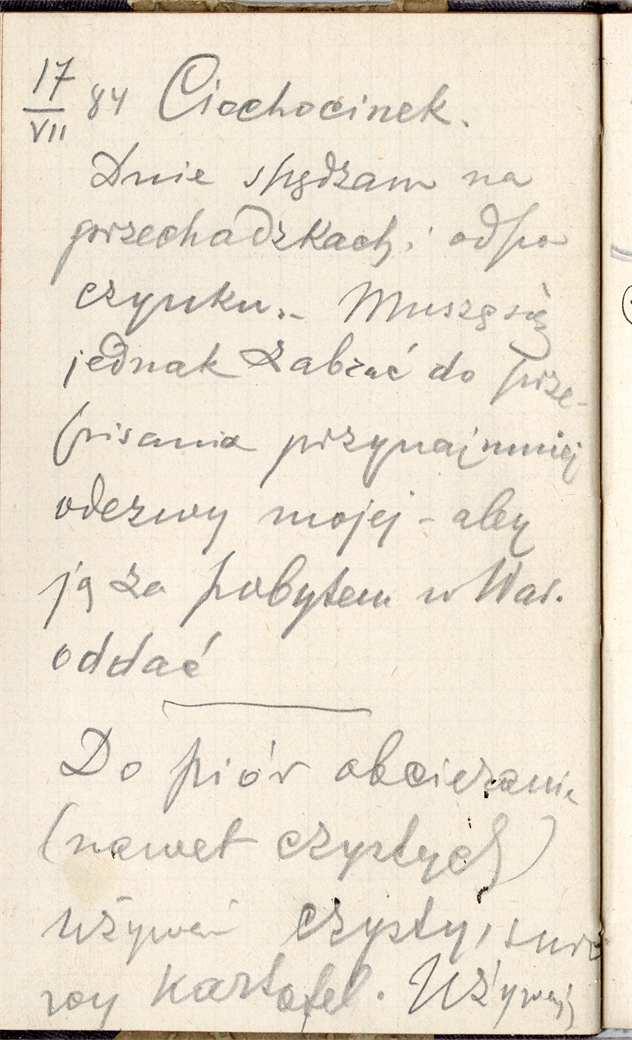 17/VII 84 Ciechocinek.
Dnie spędzam na
przechadzkach i odpo
czynku. – Muszę się
jednak zabrać do prze-
pisania przynajmniej
odezwy mojej – aby
ją za pobytem w War.
oddać
Do piór obcierania
(nawet czystych)
używać czysty, suro
wy kartofel. Używaj